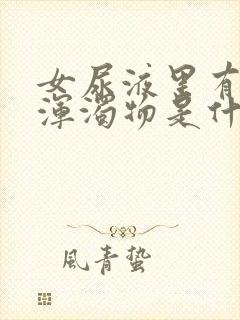 女尿液里有
浑浊物是什
風青蛰